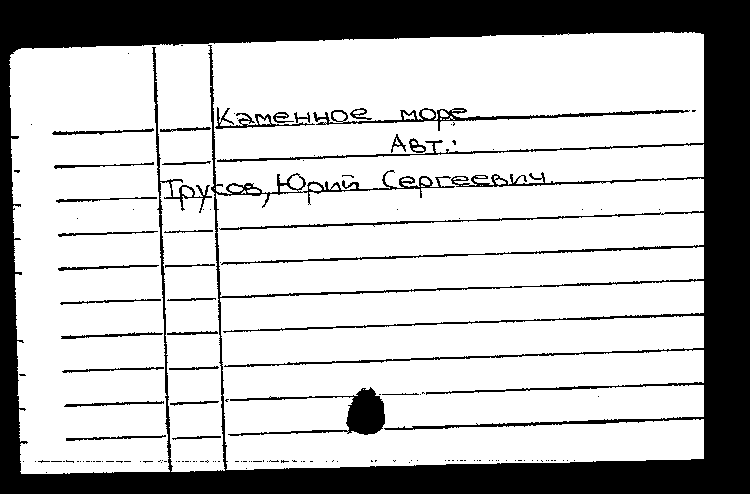 Каменное море
Авт.:
Трусов, Юрий Сергеевич